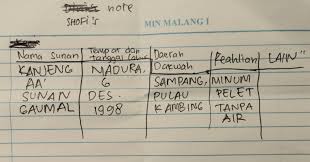 note
SHOFI'S
MIN MALANG I
Nama Sunan | Tempat dan tanggal lahir | Daerah Dakwah | Keahlian | LAIN"
KANJENG | MADURA, | SAMPANG, | MINUM
AA' | 6 | PULAU | PELET
SUNAN | DES. | KAMBING | TANPA
GAUMAL | 1998 | AIR